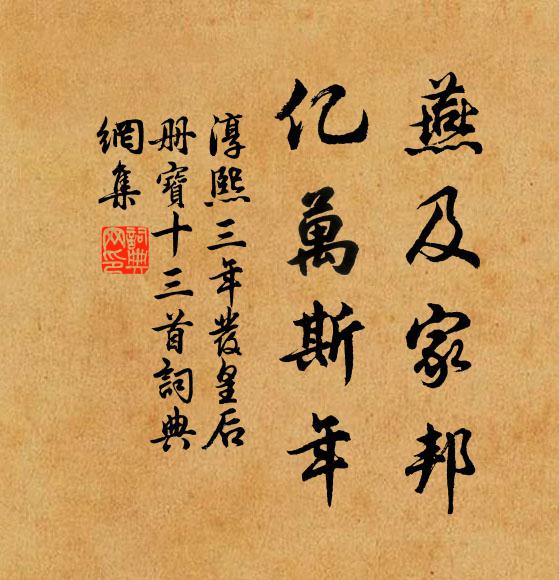 燕及家邦
亿萬斯年
淳熙三年發皇后
册寶十三首詞典
網集
詞典網印